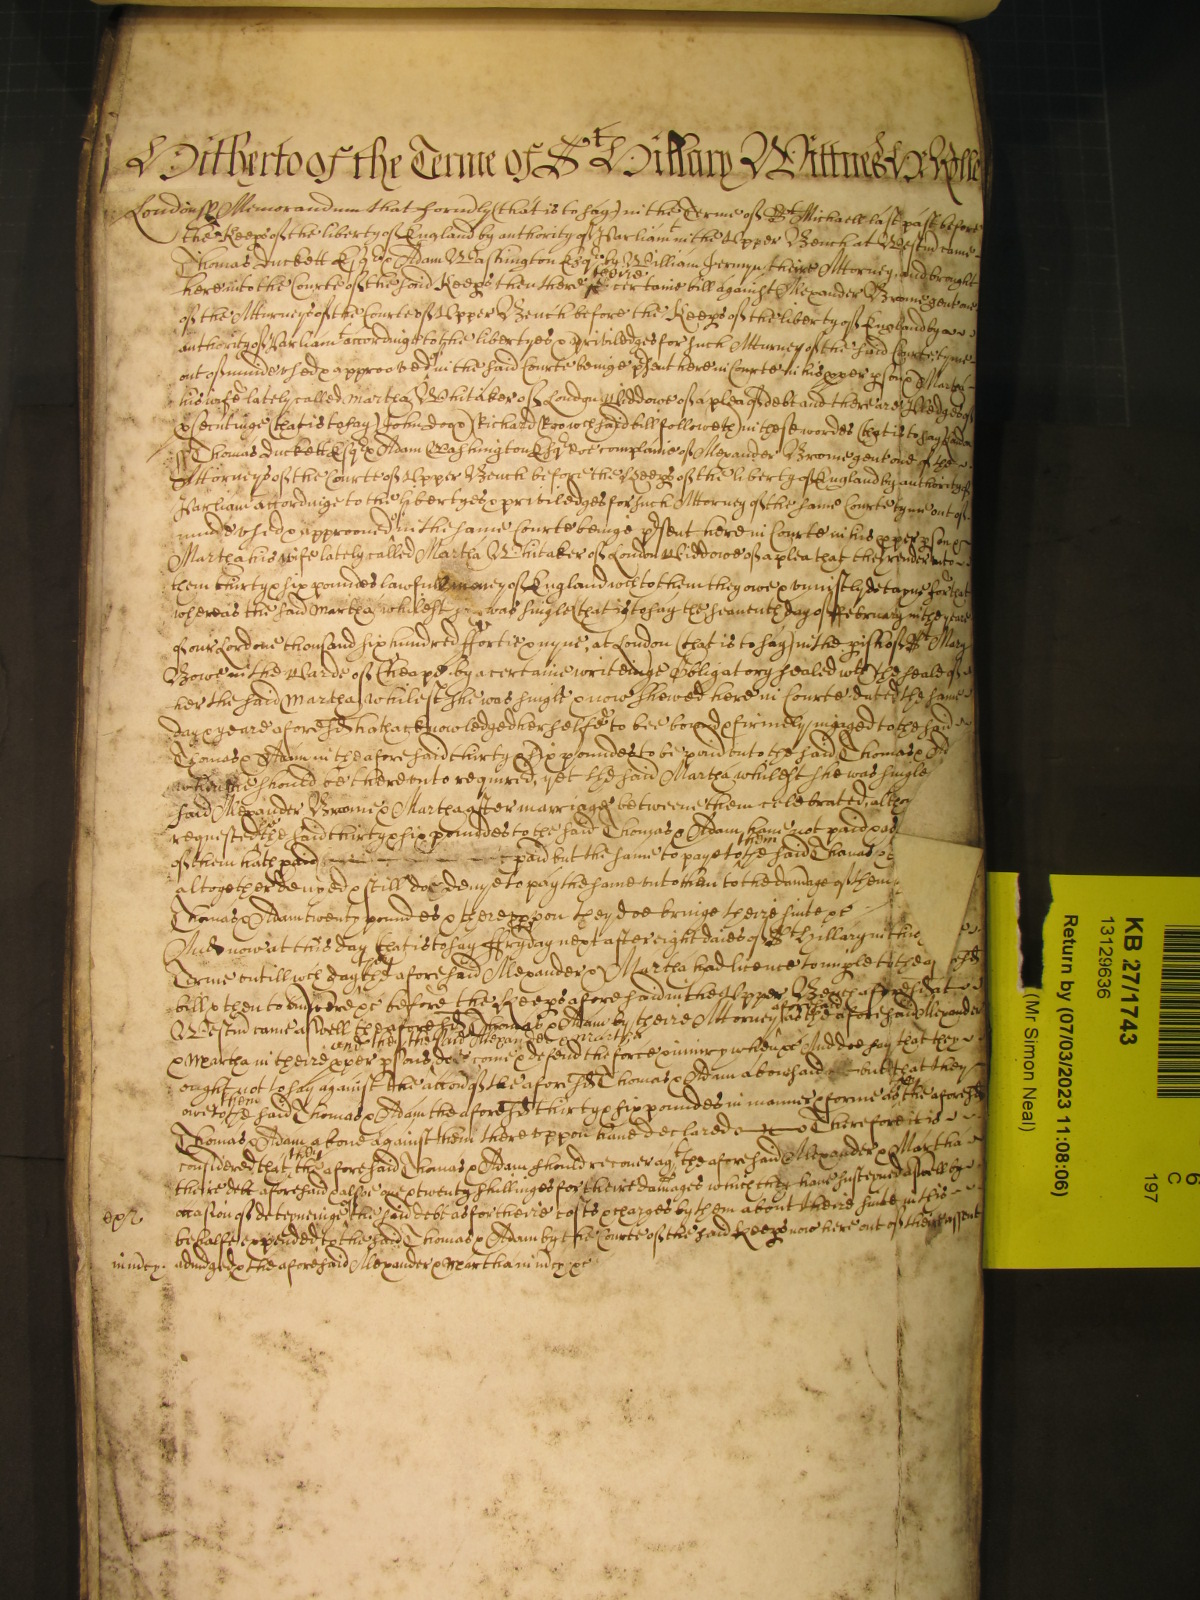 Hitherto of the Terme of St Hillary Wittnes H Rolle
London ss Memorandum that formerly (that is to say) in the Terme of St Michaell last past before
the Keeps of the liberty of England by authority of Parliamt in the Upper Bench at Westm came
Thomas Duckett Esqr & Adam Washington Esqr by William Jermyn theire Attorney and brought
here into the Courte of the said Keeps then there theire certaine bill against Alexander Broome gent one
of the Attorneys of the Courte of Upper Bench before the Keeps of the liberty of England by
authority of Parliamt accordinge to the libertyes & priviledges for such Attorney of the said Courte tyme
out of minde used & approoved in the said Courte beinge psent here in Courte in his pper pson & Martha
his wife lately called Martha Whitaker of London Widdowe of a plea of debt and there are Pledges of
psecutinge (that is to say) John Doe & Richard Roo wch said bill followeth in these wordes (that is to say) London
ss Thomas Duckett Esqr & Adam Washington Esqr doe complaine of Alexander Broome gent one of the
Attorneys of the Courte of Upper Bench before the Keeps of the liberty of England by authority of
Parliamt accordinge to the libertyes & priviledges for such Attorney of the same Courte tyme out of
minde used & approoved in the same Courte beinge psent here in Courte in his pper pson &
Martha his wife lately called Martha Whitaker of London Widdowe of a plea that they render unto
them thirty & six poundes lawfull money of England wch to them they owe & uniustly detayne for that
whereas the said Martha whilest was single (that is to say) the seaventh day of February in the yeare
of our Lord one thousand six hundred fforty & nyne, at London (that is to say) in the pish of St Mary
Bowe in the Warde of Cheape by a certaine writeinge Obligatory sealed wth the seale of
her the said Martha whilest she was single & now shewed here in Courte dated the same
day & yeare aforesd hath acknowledged her selfe to bee bound & firmely ingaged to the said
Thomas & Adam in the aforesaid thirty & six poundes to be paid unto the said Thomas & Ad
when she should be thereunto required, yet the said Martha whilest she was single
said Alexander Broome & Martha after marriage betweene them celebrated, altho
requested the said thirty & six poundes to the said Thomas & Adam have not paid
of them hath paid but the same to paye to them the said Thomas &
altogether denyed & still doe denye to pay the same unto them to the damage of them
Thomas & Adam twenty poundes & thereuppon they doe bringe theire suite &c
And now at this day (that is to say) ffryday next after eight daies of St Hillary in this
Terme untill wch day the aforesaid Alexander & Martha had licence to imple to the
bill & then to answere &c before the Keeps aforesaid in the Upper Bench aforesd at
Westm came aswell the aforesd Thomas & Adam by theire Attorney aforesaid as the aforesaid Alexander
and the said Alexander & Martha
& Martha in theire pper psons doe come & defend the force & iniury when &c And doe say that they
ought not to say against the accon of the aforesd Thomas & Adam abovesaid but that they
owe to them the said Thomas & Adam the aforesd thirty & six poundes in manner & forme as the aforesd
Thomas & Adam above against them thereuppon have declared Therefore it is
considered that the aforesaid Thomas & Adam should recover agt the aforesaid Alexander & Martha
theire debt aforesaid & alsoe one & twenty shillinges for theire damages which they have susteyned aswell by
occasion of deteyneinge the said debt as for theire costs & charges by them about theire suite in this
behalfe expended to the said Thomas & Adam by the Courte of the said Keeps now here out of theire assent
in mcy. adiudged & the aforesaid Alexander & Martha in mcy &c
KB 27/1743
13129636
Return by (07/03/2023 11:08:06)
(Mr Simon Neal)
6
C
197